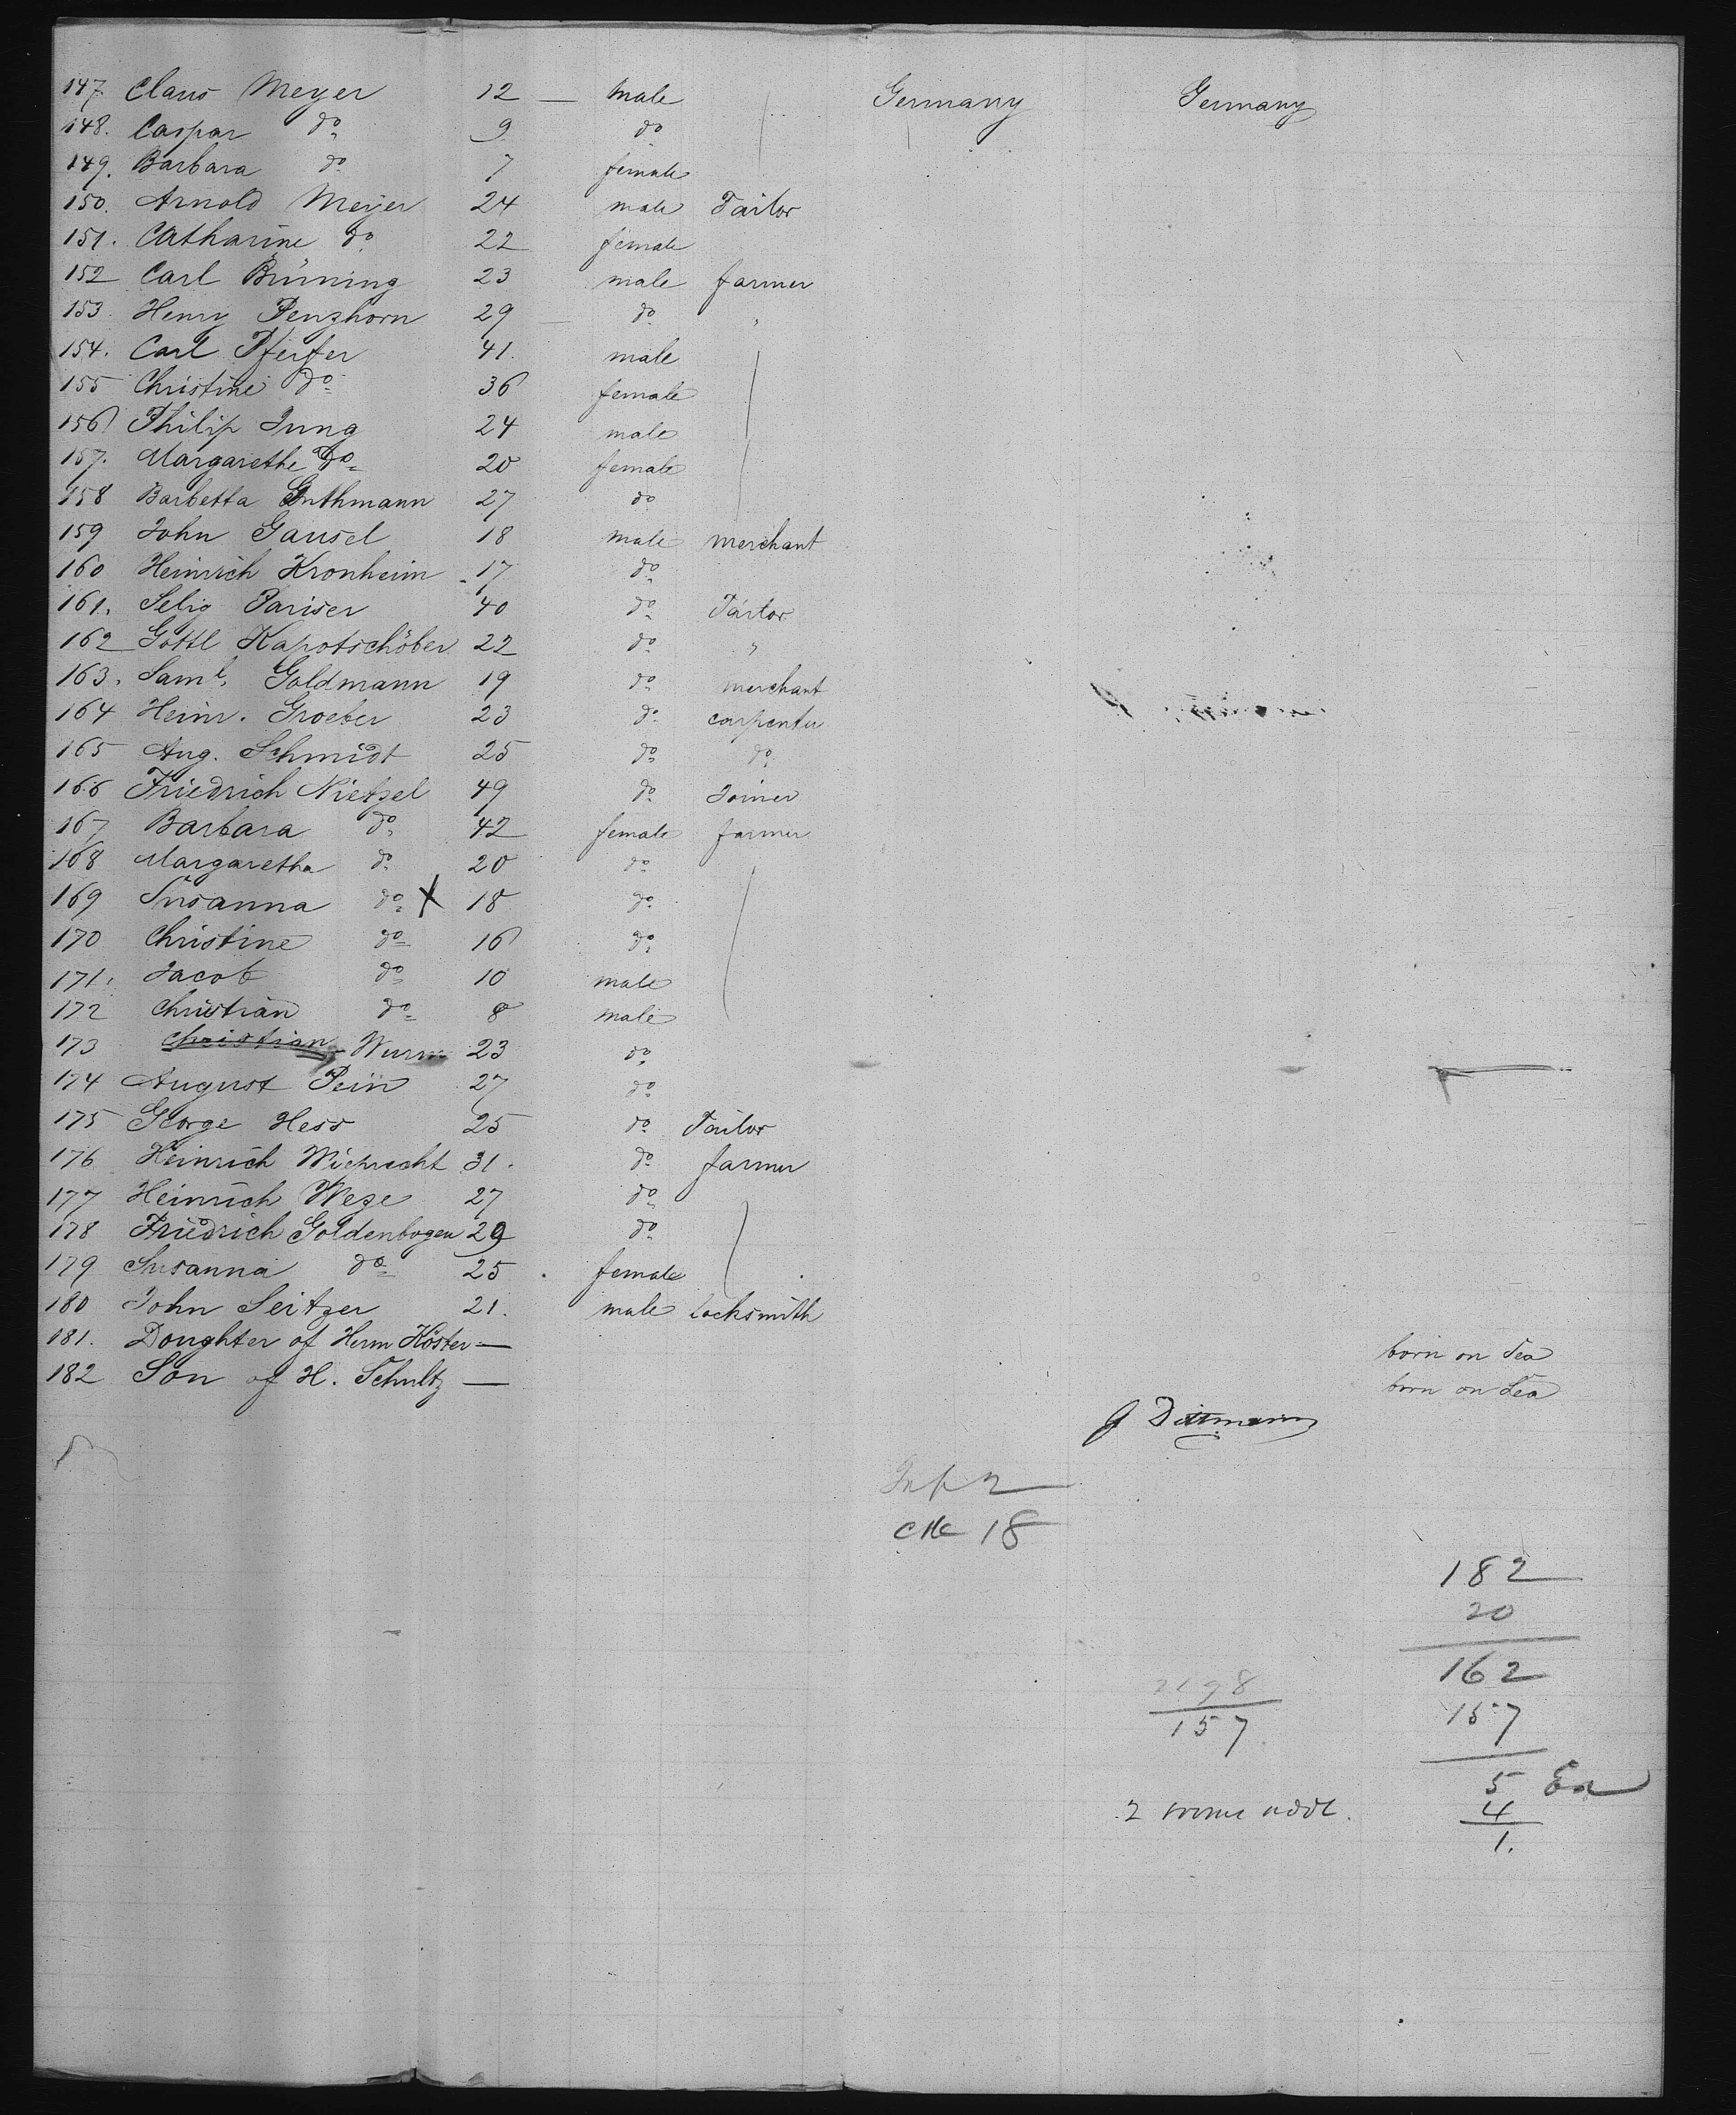 147. Claus Meyer 12 — male Germany Germany
148. Caspar do 9 do
149. Barbara do 7 female
150. Arnold Meyer 24 male Tailor
151. Catharine do 22 female
152 Carl Brüning 23 male farmer
153 Henry Penzhorn 29 — do "
154. Carl Pfeiffer 41. male
155 Christine do 36 female
156 Philip Jung 24 male
157. Margarethe do 20 female
158 Barbetta Guthmann 27 do
159 John Gausel 18 male merchant
160 Heinrich Kronheim 17 do
161. Selig Pariser 40 do Tailor
162 Gottl Kapotschöber 22 do "
163. Saml. Goldmann 19 do merchant
164 Heinr. Groeber 23 do carpenter
165 Aug. Schmidt 25 do do
166 Friedrich Nietzel 49 do Joiner
167 Barbara do 42 female farmer
168 Margaretha do 20 do
169 Susanna do X 18 do
170 Christine do 16 do
171. Jacob do 10 male
172 Christian do 8 male
173 Christian Wurm 23 do
174 August Pein 27 do
175 George Hess 25 do Tailor
176 Heinrich Wiepracht 31. do farmer
177 Heinrich Weze 27 do
178 Friedrich Goldenbogen 29 do
179 Susanna do 25 female
180 John Seitzer 21. male locksmith
181. Doughter of Herm Köster — born on Sea
182 Son of H. Schultz — born on Sea
J Dittmann
Inf 2
Ch 18
182
20
162
2198
157
157
5
2
4
1.